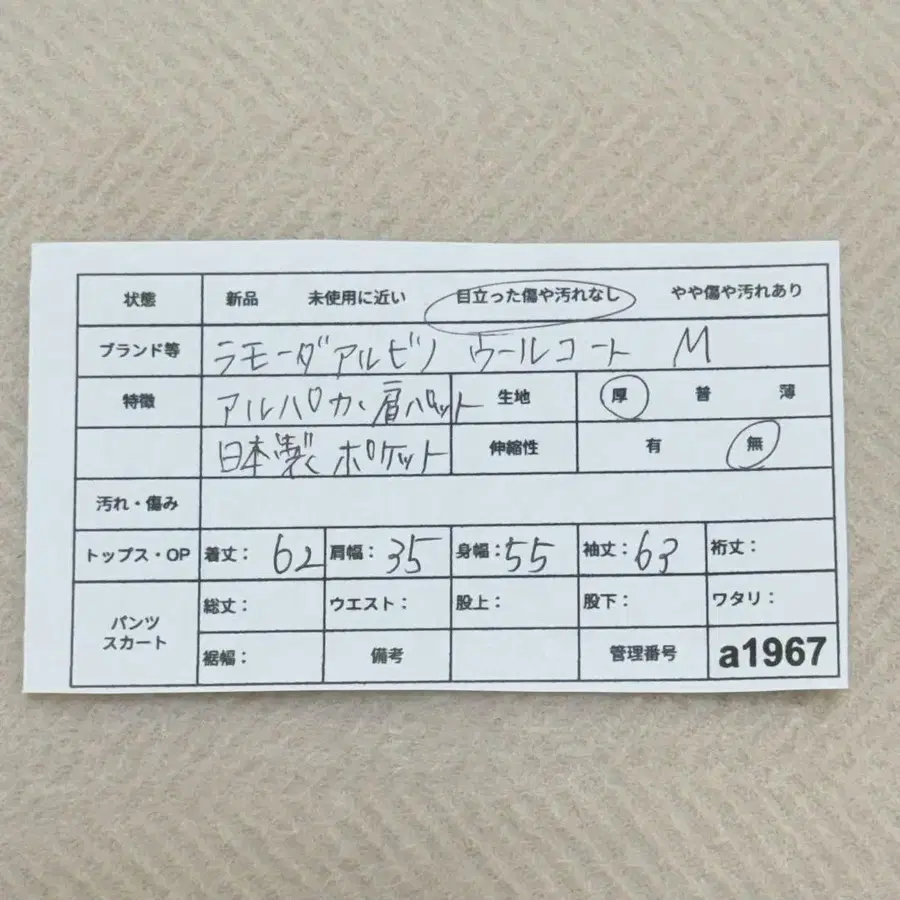 状態 新品 未使用に近い 目立った傷や汚れなし やや傷や汚れあり
ブランド等 ラモーダアルビノ ウールコート M
特徴 アルパカ、肩パット 生地 厚 普 薄
日本製 ポケット 伸縮性 有 無
汚れ・傷み
トップス・OP 着丈： 62 肩幅： 35 身幅： 55 袖丈： 63 裄丈：
パンツ スカート 総丈： ウエスト： 股上： 股下： ワタリ：
裾幅： 備考 管理番号 a1967